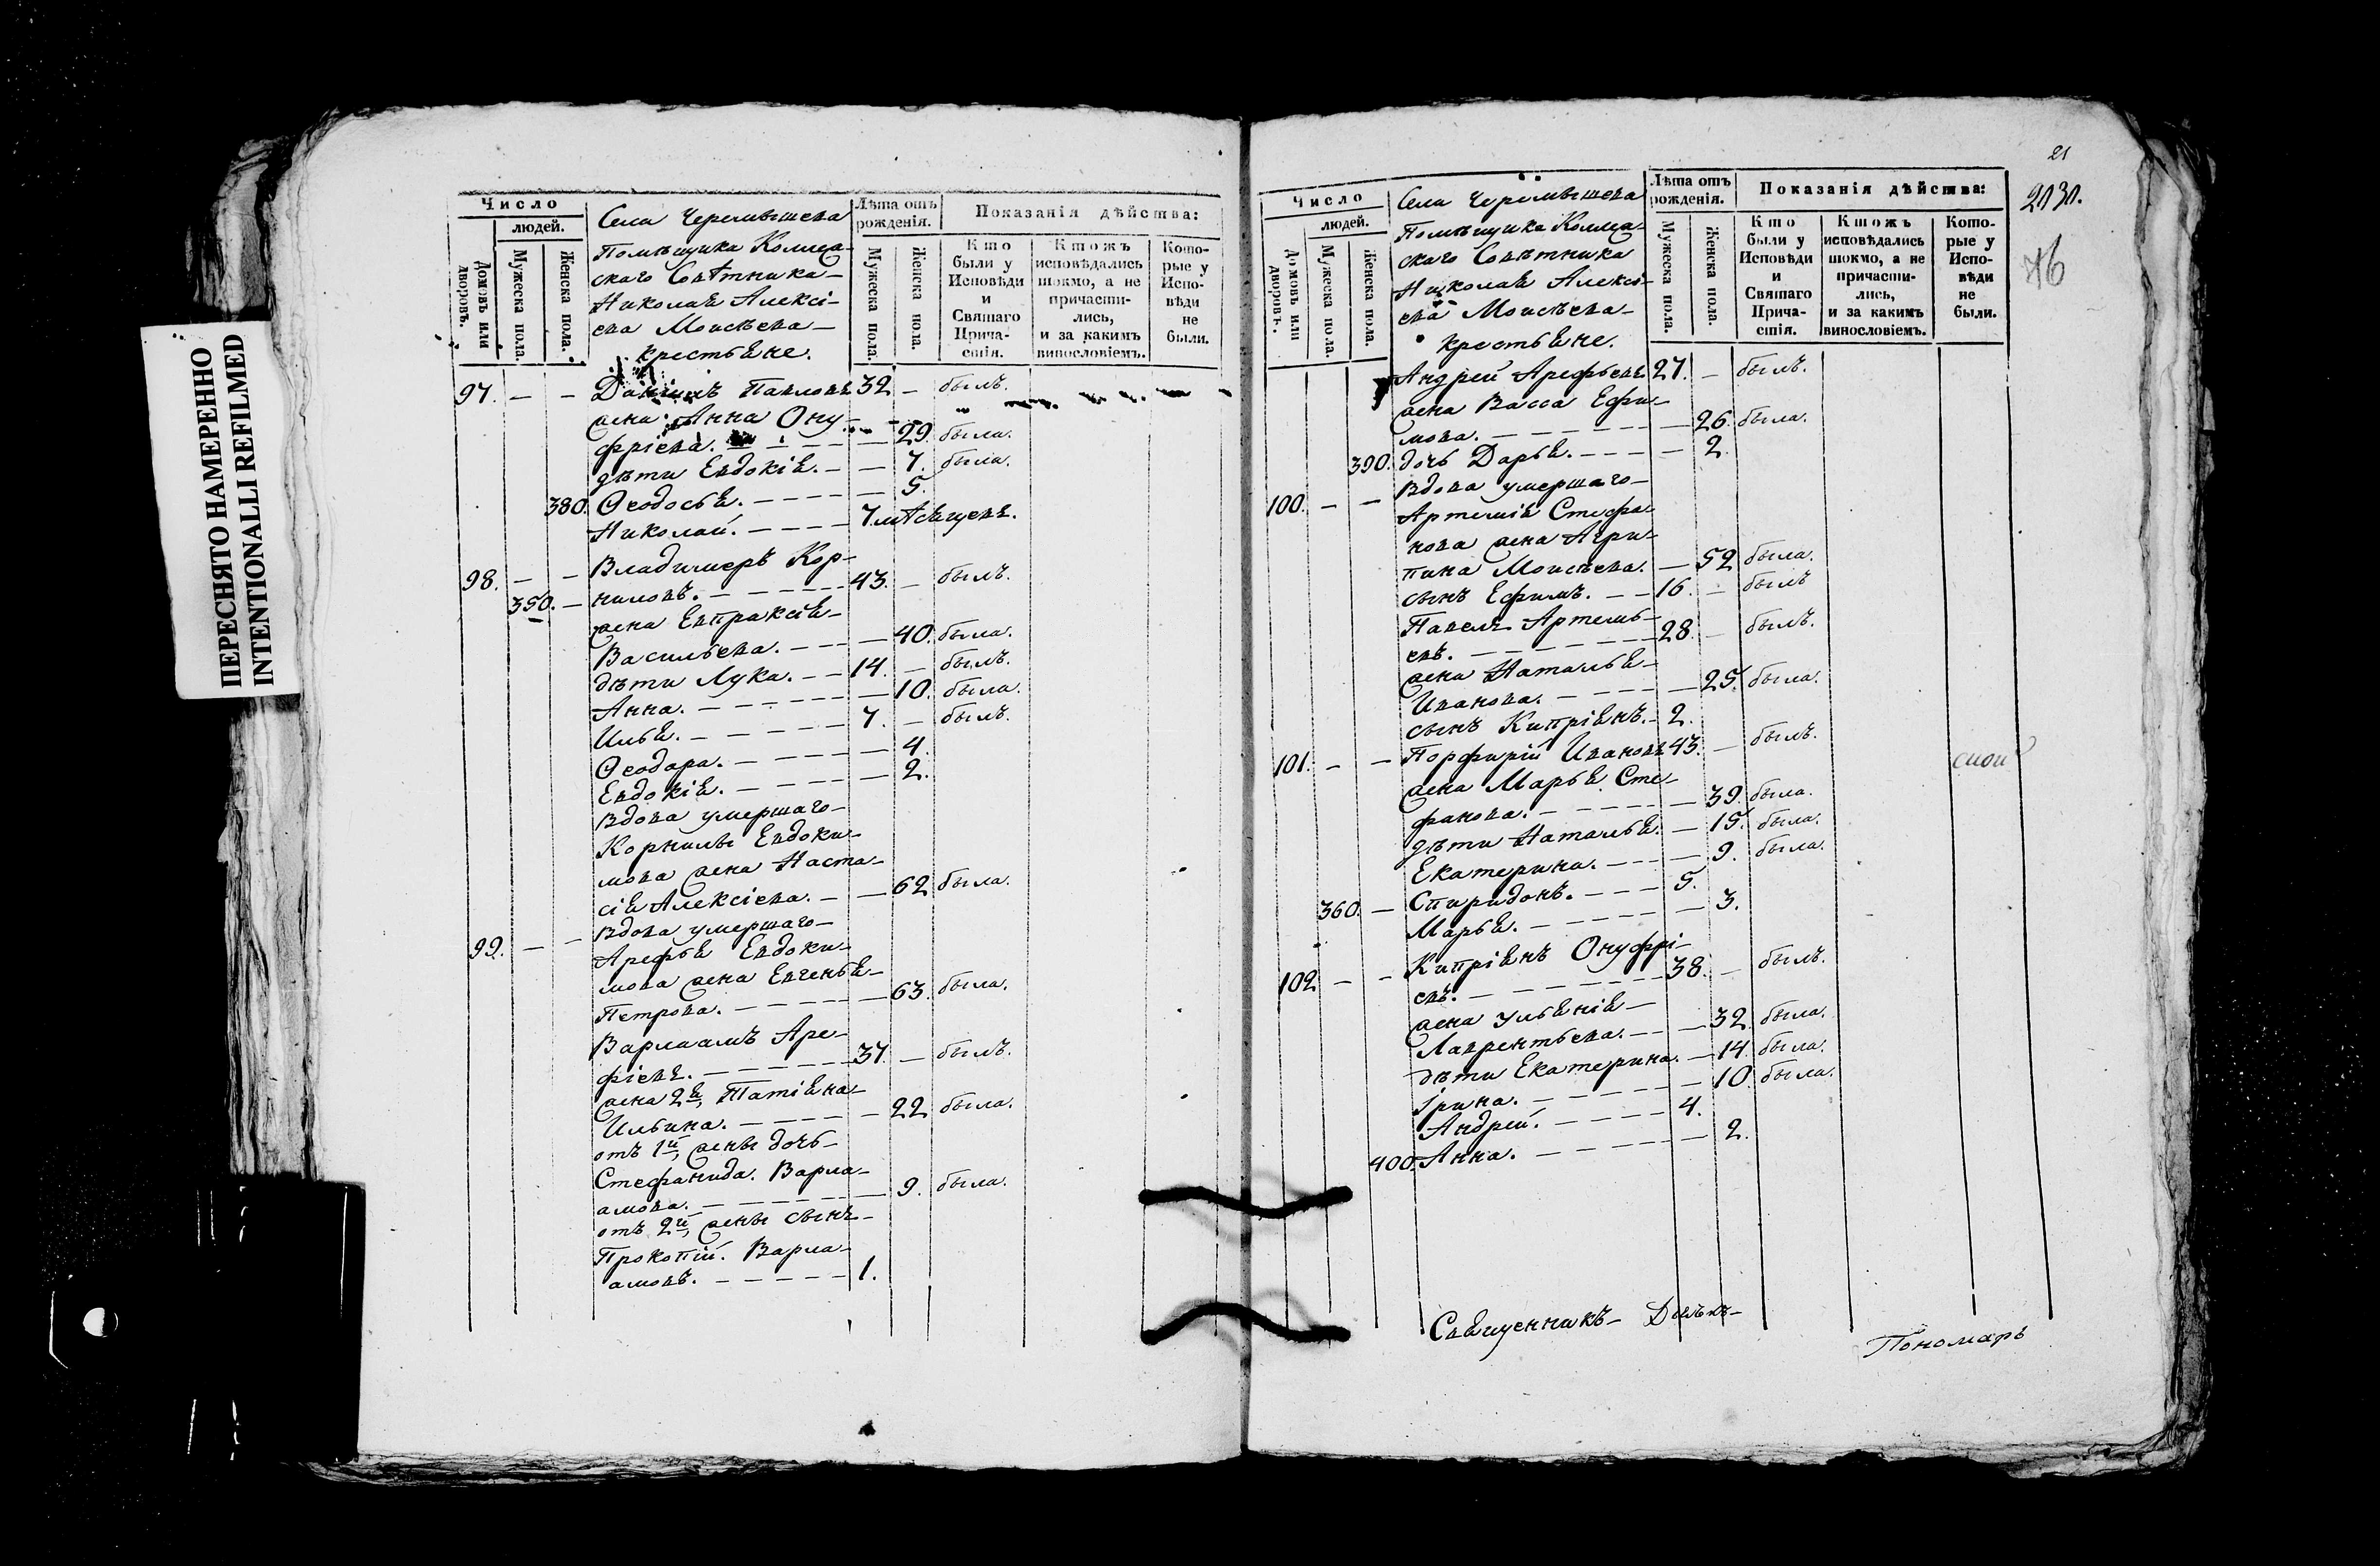 ПЕРЕСНЯТО НАМЕРЕННО
INTENTIONALLI REFILMED
Число
людей.
Домовъ или дворовъ.
Мужеска пола.
Женска пола.
Села Черемышева
Помѣщика Коллеж-
скаго Совѣтника
Николая Алексі-
ева Моисѣева
крестьяне.
Лѣта отъ рожденія.
Мужеска пола.
Женска пола.
Показанія дѣйства:
Кто были у Исповѣди и Святаго Прича-стія.
Ктожъ исповѣдались токмо, а не причасти-лись, и за какимъ винословіемъ.
Кото-рые у Испо-вѣди не были.
97. — — Даніилъ Павловъ 32 — былъ.
жена Анна Ону-
фріева. — 29. была.
дѣти Евдокія. — — 7. была.
380. Ѳеодосья. — 5.
Николай. — 7. мѣсяцевъ.
98. — — Владимеръ Кор-
350. — ниловъ. — 43. — былъ.
жена Евпраксія
Васильева. — 40. была.
дѣти Лука. — 14. — былъ.
Анна. — 10. была.
Илья. — 7. — былъ.
Ѳеодора. — 4.
Евдокія. — 2.
Вдова умершаго
Корнилы Евдоки-
мова жена Наста-
сія Алексіева. — 62 была.
99. — — Вдова умершаго
Арефья Евдоки-
мова жена Евгенья
Петрова. — 63. была.
Варлаамъ Аре-
фіевъ. — 37 — былъ.
жена 2я, Татіяна
Ильина. — 22 была.
отъ 1й, жены дочь
Стефанида. Варла-
амова. — 9. была.
отъ 2й, жены сынъ
Прокопій. Варла-
амовъ. — 1.
21
2030.
76
Число
людей.
Домовъ или дворовъ.
Мужеска пола.
Женска пола.
Села Черемышева
Помѣщика Коллеж-
скаго Совѣтника
Николая Алексі-
ева Моисѣева
крестьяне.
Лѣта отъ рожденія.
Мужеска пола.
Женска пола.
Показанія дѣйства:
Кто были у Исповѣди и Святаго Прича-стія.
Ктожъ исповѣдались токмо, а не причасти-лись, и за какимъ винословіемъ.
Кото-рые у Испо-вѣди не были.
Андрей Арефьевъ 27. — былъ.
жена Васса Ефи-
мова. — 26. была.
390. дочь Дарья. — 2.
100. — — Вдова умершаго
Артемія Стефа-
нова жена Агри-
пина Моисѣева. — 52 была.
сынъ Ефимъ. — 16. — былъ
Павелъ Артемь-
евъ. — 28. — былъ.
жена Наталья
Иванова. — 25. была.
сынъ Кипріянъ. — 2.
101. — — Порфирій Ивановъ 43. — былъ.
жена Марья Сте-
фанова. — 39. была.
дѣти Наталья. — 15. была.
Екатерина. — 9. была.
360. — Спиридонъ. — 5.
Марья. — 3.
102 — — Кипріянъ Онуфрі-
евъ. — 38. — былъ.
жена Ульянія
Лаврентьева. — 32. была.
дѣти Екатерина. — 14. была.
Ірина. — 10 была.
Андрей. — 4.
400. Анна. — 2.
Священникъ
Пономарь